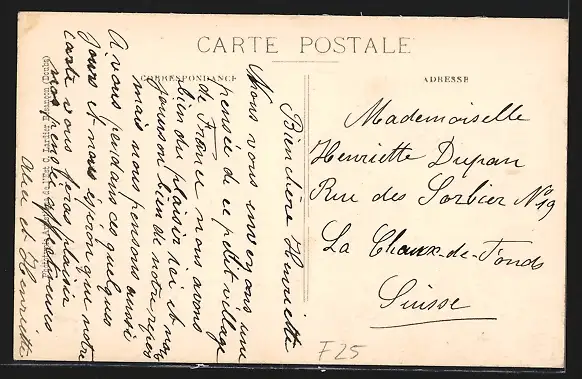 CARTE POSTALE
CORRESPONDANCE
ADRESSE
Bien chère Henriette
Nous vous envoyons une
pensée de ce petit village
de France nous avons
bien du plaisir ici et nous
jouisson bien de notre repos
mais nous pensons aussi
A vous pendans ces quelques
jours et nous espéron que notre
carte vous feras plaisir
nos
et Henriette
Mademoiselle
Henriette Dupan
Rue des Sorbier No 19
La Chaux-de-Fonds
Suisse
F25